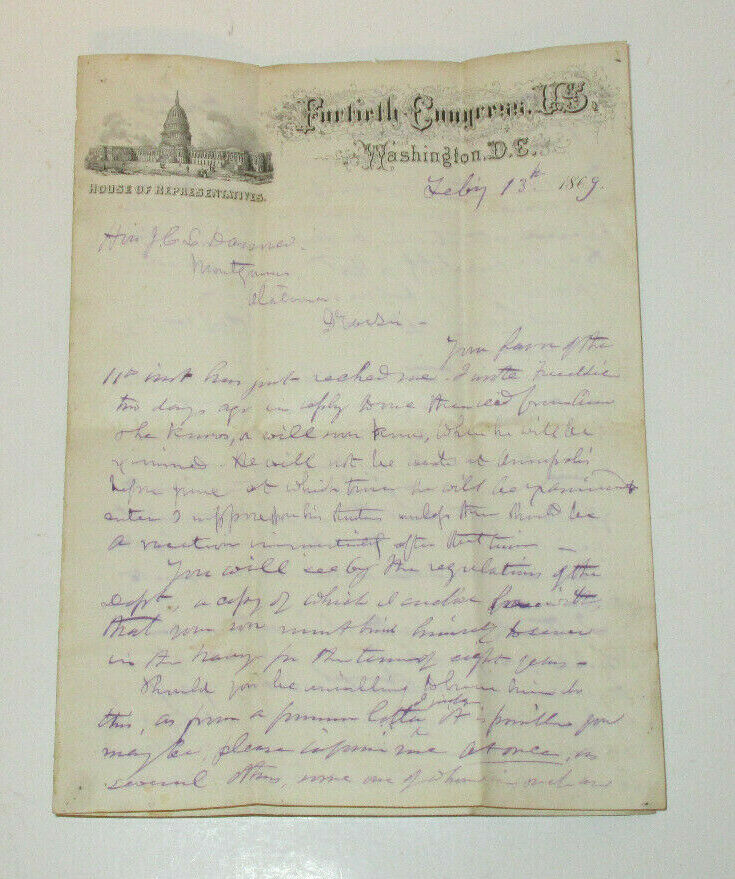 Fortieth Congress, U.S.
Washington, D.C.
HOUSE OF REPRESENTATIVES.
Feby 13th 1869.
Hon J. C. L.
Montgomery
Alabama
Dear Sir -
Your favor of the
11th inst has just reached me. I wrote Freddie
two days ago in reply to
he knows, or will soon know, when he will be
examined. He will not be at Annapolis
before June at which time he will be examined &
enter I suppose on his studies unless there should be
a vacation immediately after that time -
You will see by the regulations of the
Dept., a copy of which I enclose
that your son must bind himself to serve
in the Navy for the term of eight years -
Should you be unwilling to have him do
this, as from a
letter it is possible you
may be, please inform me at once, as
several others, some one of whom